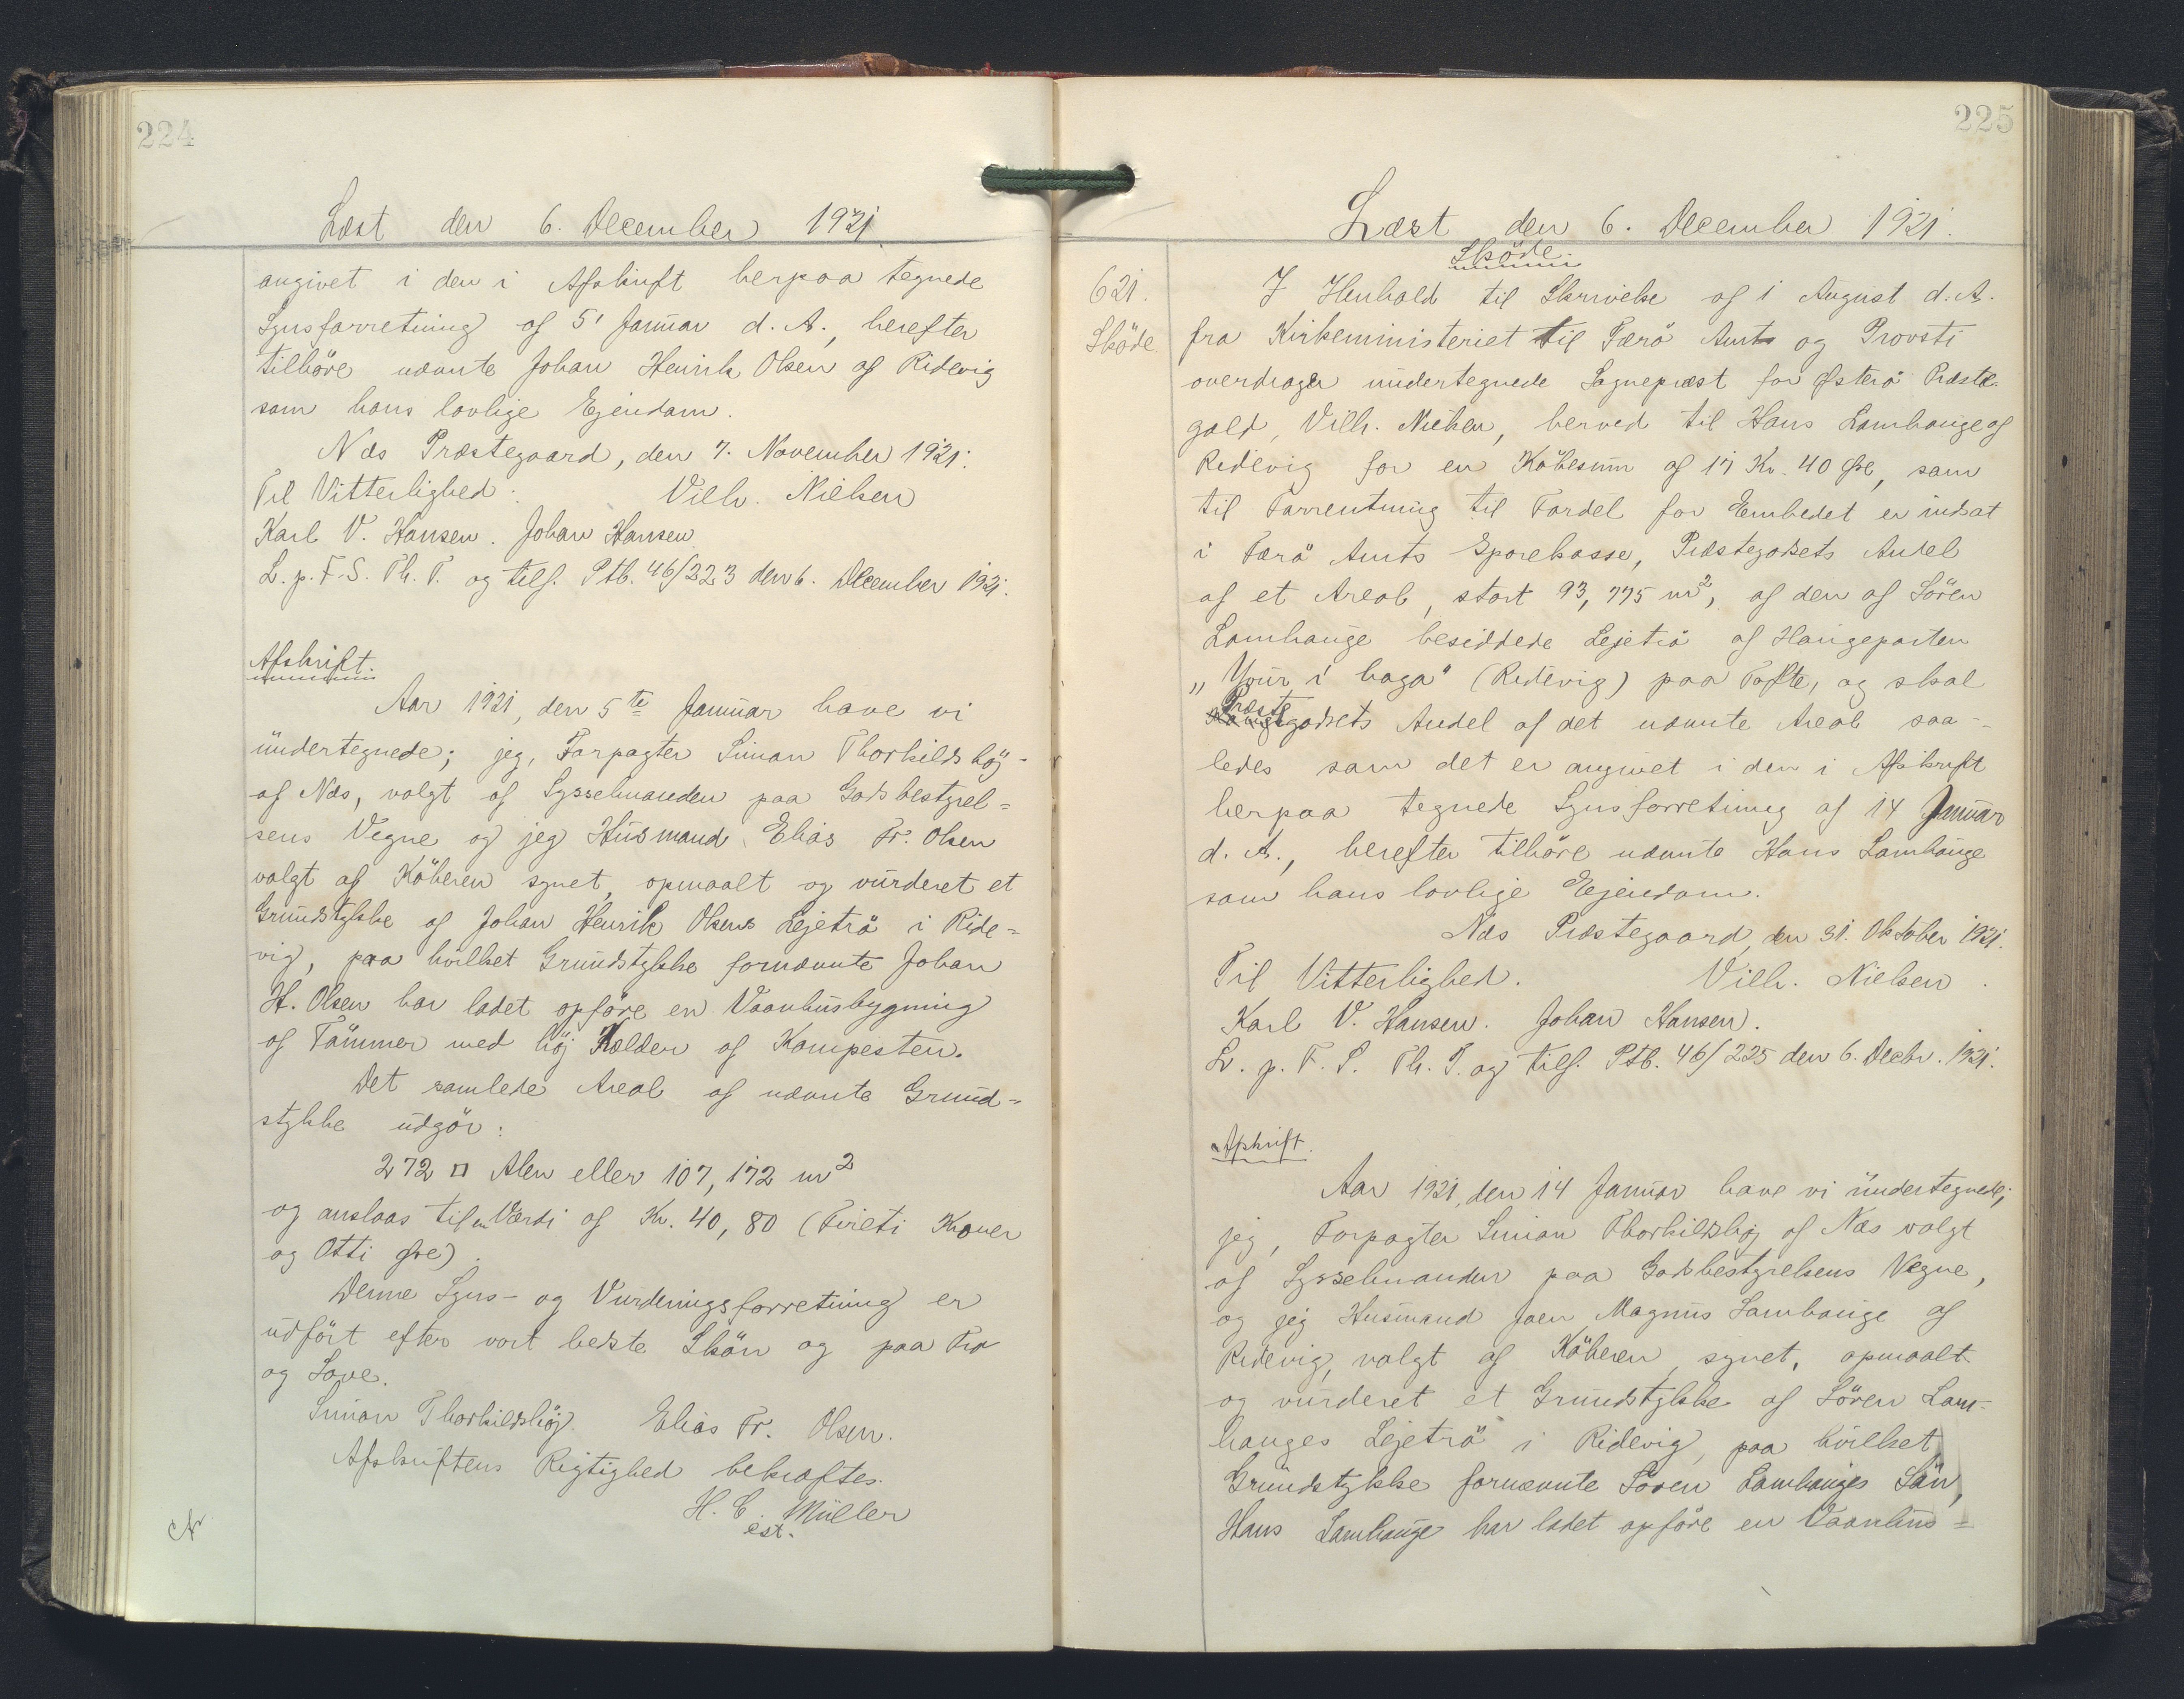 224
Læst den 6. December 1921.
angivet i den i Afskrift herpaa tegnede
Synsforretning af 5' Januar d. A., herefter
tilhöre nævnte Johan Henrik Olsen af Ridevig
som hans lovlige Ejendom.
Næs Præstegaard, den 7. November 1921.
Til Vitterlighed: Vilh. Nielsen
Karl V. Hansen. Johan Hansen
L. p. F. S. Th. T. og tilf. Ptb. 46/223 den 6. December 1921.
Afskrift.
Aar 1921, den 5te Januar have vi
undertegnede; jeg, Forpagter Simon Thorkildshöj
af Næs, valgt af Sysselmanden paa Godsbestyrel=
sens Vegne og jeg Husmand Elias Fr. Olsen
valgt af Köberen synet, opmaalt og vurderet et
Grundstykke af Johan Henrik Olsens Lejetrö i Ride=
vig, paa hvilket Grundstykke fornævnte Johan
H. Olsen har ladet opföre en Vaanhusbygning
af Tömmer med höj Kælder af Kampesten.
Det samlede Areal af nævnte Grund=
stykke udgör:
272 □ Alen eller 107,172 m²
og anslaas til en Værdi af Kr. 40,80 (Fireti Kroner
og Otti Øre).
Denne Syns- og Vurderingsforretning er
udfört efter vort bedste Skön og paa Tro
og Love.
Simon Thorkildshöj Elias Fr. Olsen.
Afskriftens Rigtighed bekræftes.
H. C. Müller
est.
225
Læst den 6. December 1921.
Sköde
621.
Sköde
I Henhold til Skrivelse af 1 August d. A.
fra Kirkeministeriet til Færö Amt og Provsti
overdrager undertegnede Sognepræst for Østerö Præste-
gæld, Vilh. Nielsen, herved til Hans Lamhauge af
Ridevig for en Köbesum af 17 Kr. 40 Øre, som
til Forrentning til Fordel for Embedet er indsat
i Færö Amts Sparekasse, Præstegodsets Andel
af et Areal, stort 93,775 m², af den af Sören
Lamhauge besiddede Lejetrö af Haugeparten
"Yvir í haga" (Ridevig) paa Tofte, og skal
Præstegodsets Andel af det nævnte Areal saa-
ledes som det er angivet i den i Afskrift
herpaa tegnede Synsforretning af 14 Januar
d. A., herefter tilhöre nævnte Hans Lamhauge
som hans lovlige Ejendom.
Næs Præstegaard, den 31. Oktober 1921.
Til Vitterlighed. Vilh. Nielsen.
Karl V. Hansen. Johan Hansen.
L. p. F. S. Th. T. og tilf. Ptb. 46/225 den 6. Decbr. 1921.
Afskrift.
Aar 1921, den 14 Januar have vi undertegnede;
jeg, Forpagter Simon Thorkildshöj af Næs valgt
af Sysselmanden paa Godsbestyrelsens Vegne,
og jeg Husmand Joen Magnus Lamhauge af
Ridevig, valgt af Köberen, synet, opmaalt
og vurderet et Grundstykke af Sören Lam-
hauges Lejetrö i Ridevig, paa hvilket
Grundstykke fornævnte Sören Lamhauges Sön,
Hans Lamhauge har ladet opföre en Vaanhus=